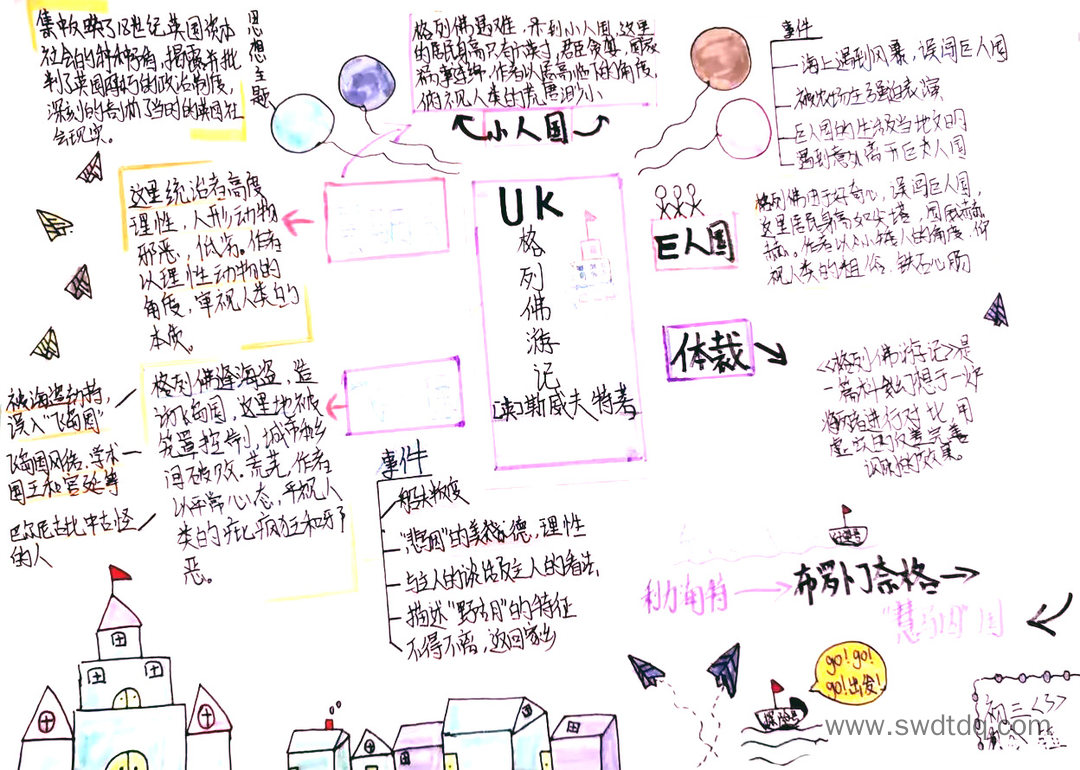 集中反映了18世纪英国资本
社会的种种矛盾，揭露并批
判了英国的政治制度，
深刻的剖析了当时的英国社
会现实。
思想主题
格列佛遇难，来到小人国，这里
的居民身高只有六英寸，君臣贪婪，
作者以居高临下的角度，
俯视人类的渺小
小人国
事件
海上遇到风暴，误闯巨人国
被农场主强迫表演
巨人国的生活及当地文明
遇到意外离开巨大人国
这里统治者高度
理性，人形动物
邪恶，低劣。作者
以理性动物的
角度，审视人类的
本质。
UK
格列佛游记
[英]斯威夫特著
巨人国
格列佛由于好奇心，误闯巨人国，
这里居民身高如尖塔，
作者以小矮人的角度，仰
视人类的粗俗，铁石心肠
体裁
《格列佛游记》是
一篇
进行对比，用
效果。
被海盗劫持，
误入“飞岛国”
飞岛国风俗，学术
国王和宫廷等
巴尔尼古比中古怪
的人
格列佛逢海盗，造
访飞岛国，这里地被
控制，城市和乡
间破败、荒芜，作者
以平常心态，平视人
类的疯狂和邪
恶。
事件
船夫叛变
的美德，理性
与主人的谈话及主人的看法，
描述“野胡”的特征
不得不离，返回家乡
利力浦特
布罗卜丁奈格
“慧骃”国
go!go!
go!出发!
探险号
初三<3>
www.swdtdq.com